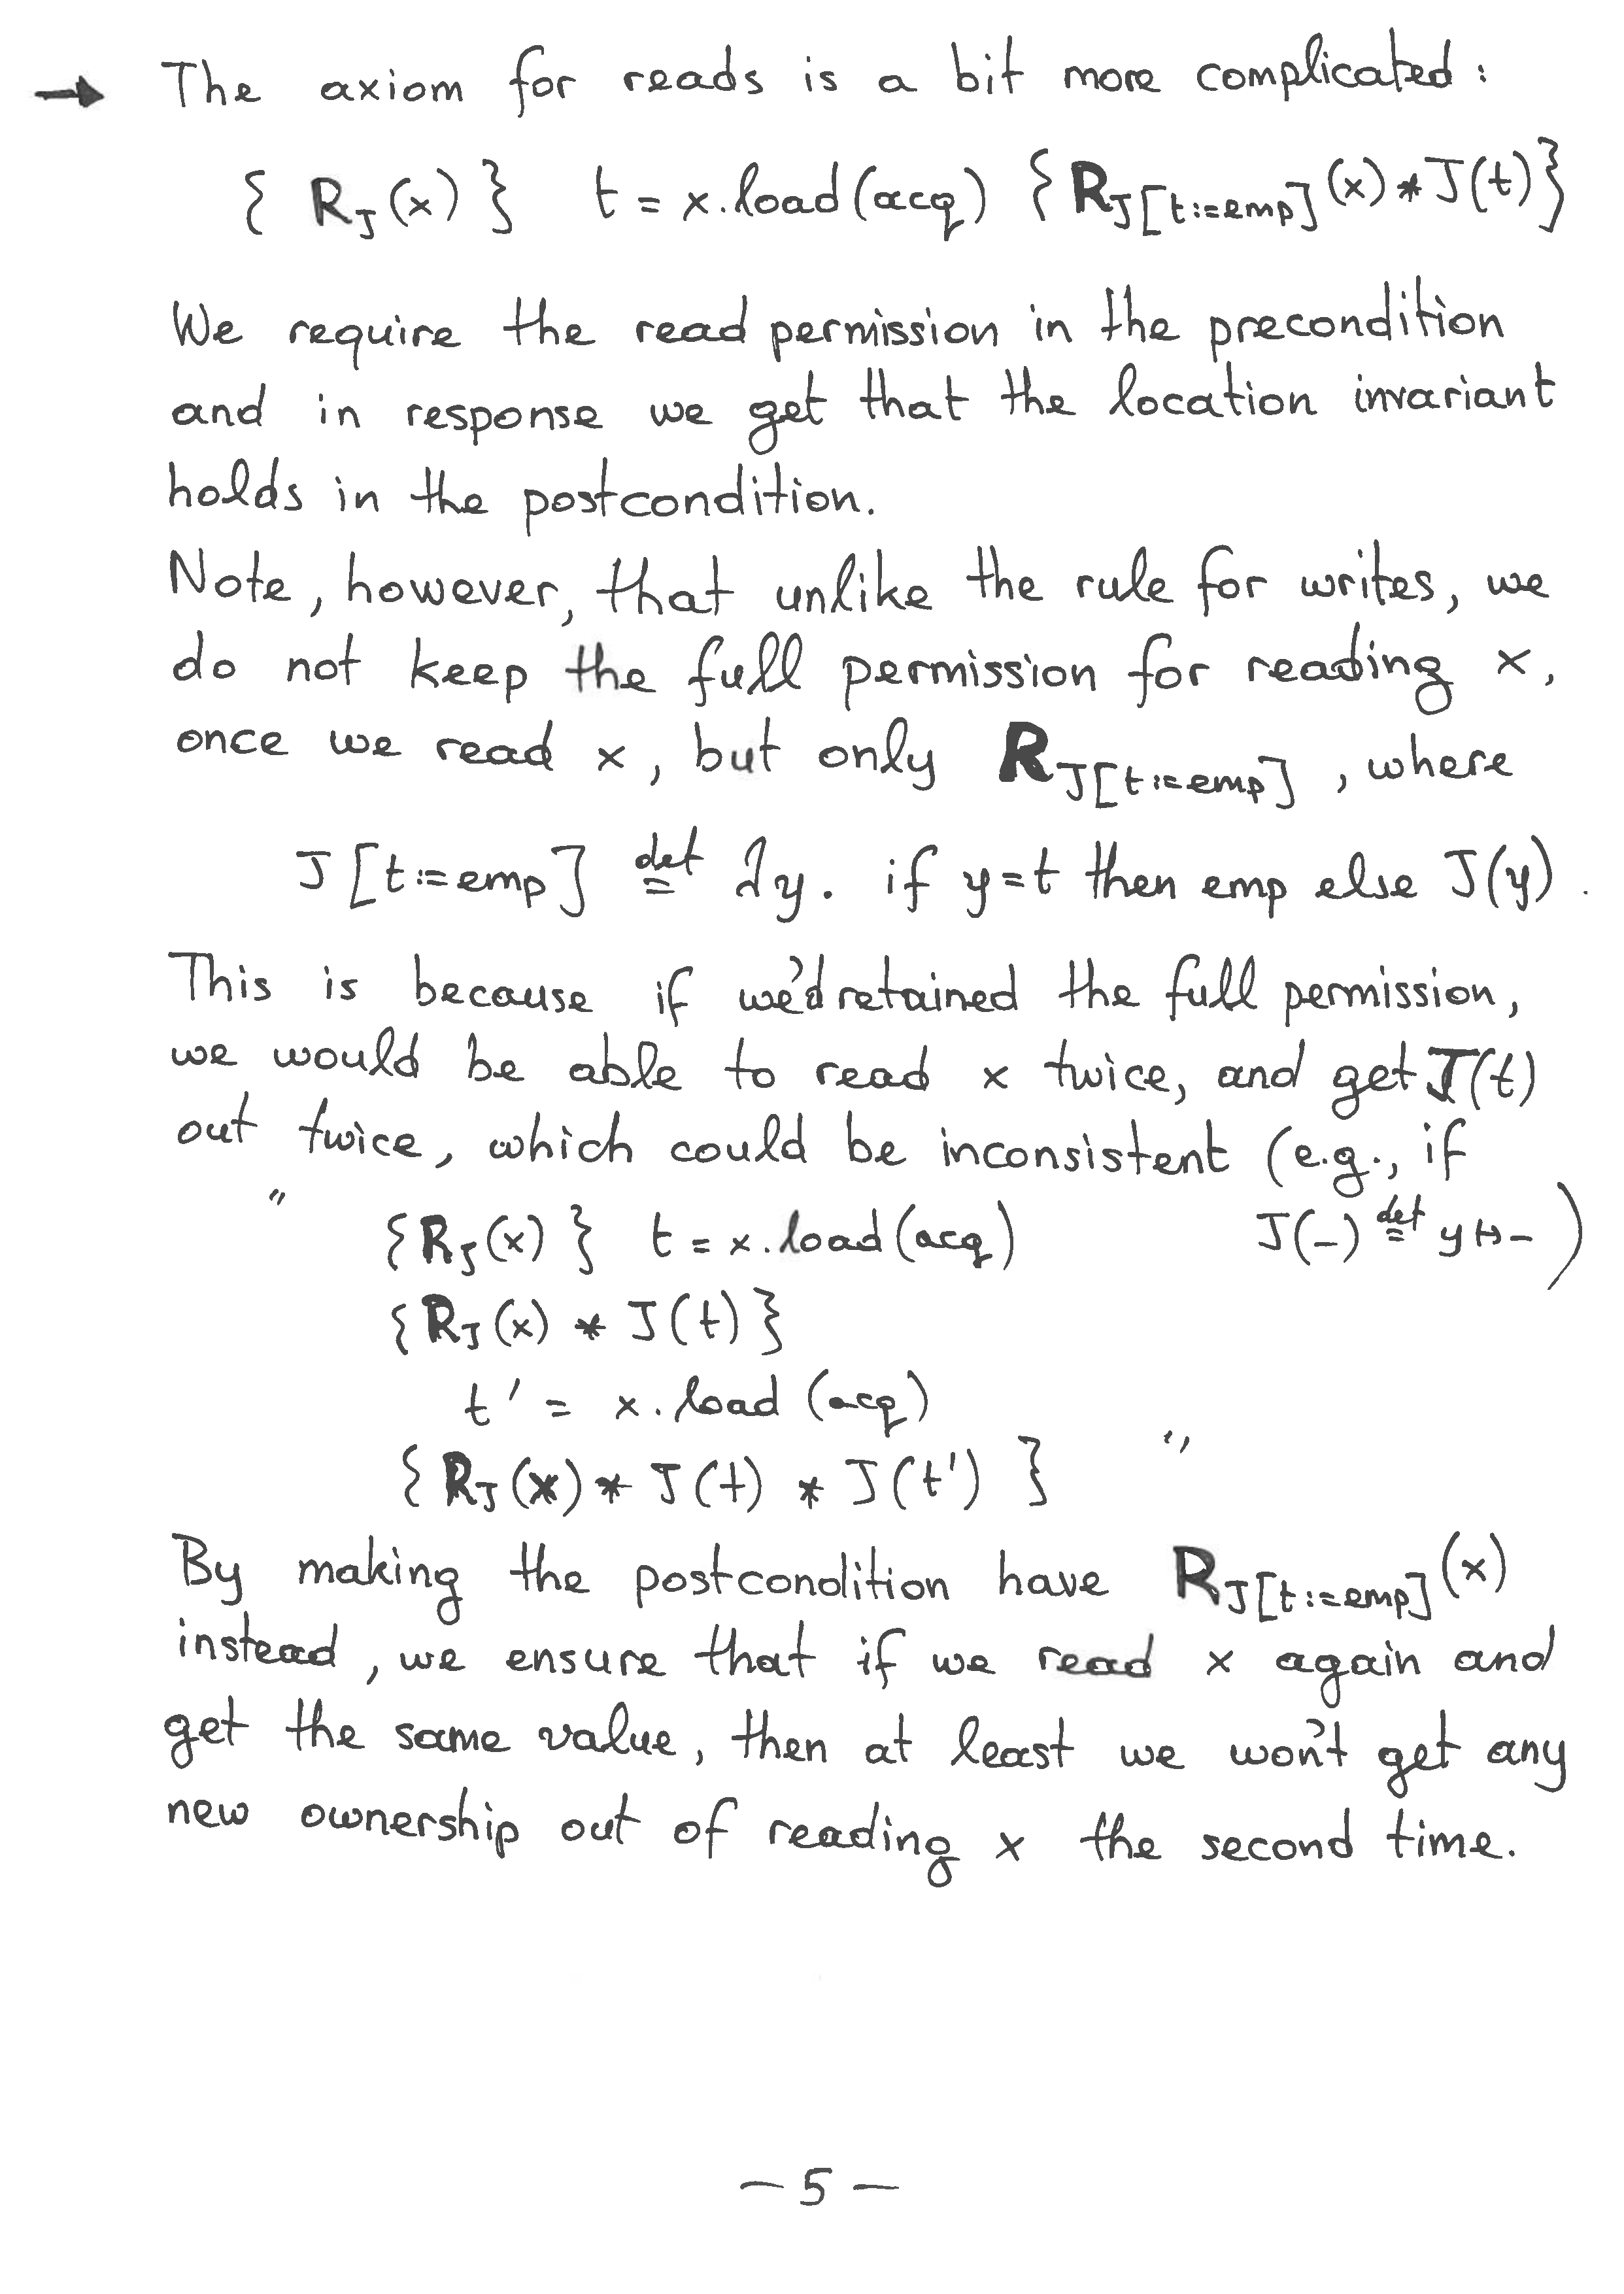 → The axiom for reads is a bit more complicated:
{ R_J(x) } t = x.load(acq) { R_J[t:=emp](x) * J(t) }
We require the read permission in the precondition
and in response we get that the location invariant
holds in the postcondition.
Note, however, that unlike the rule for writes, we
do not keep the full permission for reading x,
once we read x, but only R_J[t:=emp], where
J[t:=emp] ≝ λy. if y=t then emp else J(y).
This is because if we'd retained the full permission,
we would be able to read x twice, and get J(t)
out twice, which could be inconsistent (e.g., if
" { R_J(x) } t = x.load(acq) J(-) ≝ y ↦ - )
{ R_J(x) * J(t) }
t' = x.load(acq)
{ R_J(x) * J(t) * J(t') } "
By making the postcondition have R_J[t:=emp](x)
instead, we ensure that if we read x again and
get the same value, then at least we won't get any
new ownership out of reading x the second time.
— 5 —